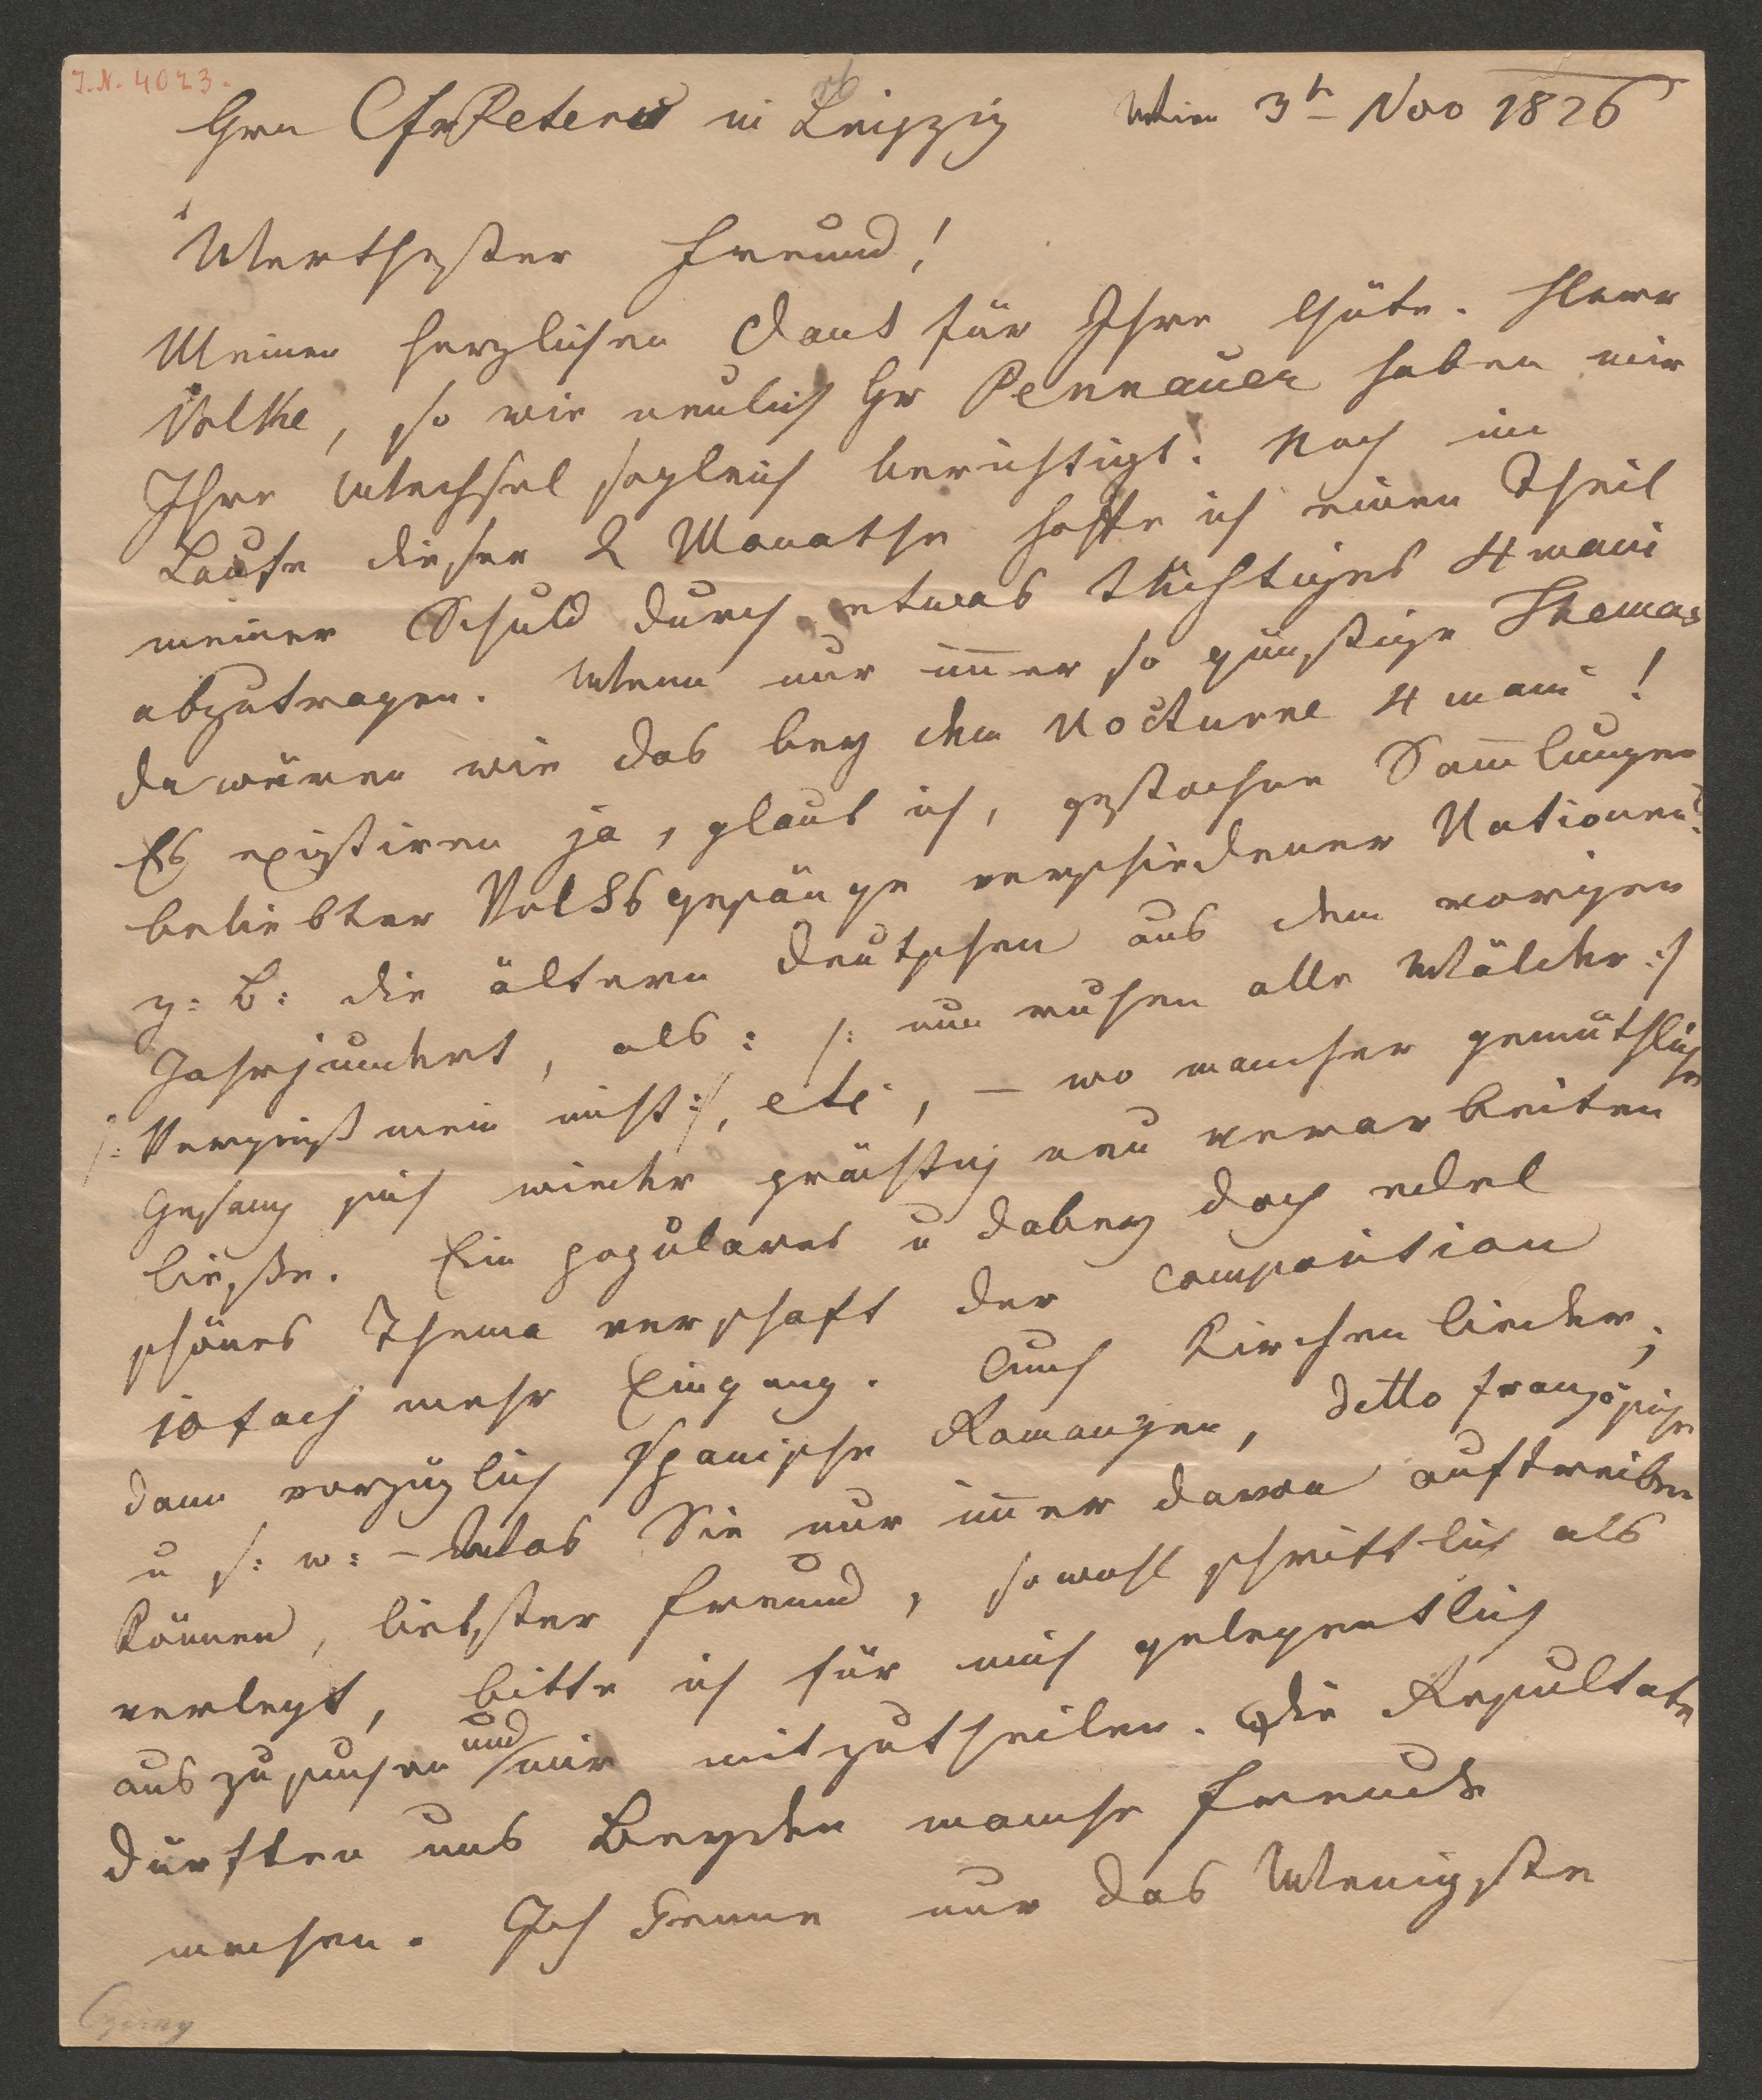 I.N. 4023.
Hrn C F Peters in Leipzig Wien 3t Nov 1826
Werthester Freund!
Meinen herzlichen Dank für Ihre Güte. Herr
Volke, so wie neulich Hr Pennauer haben mir
Ihre Wechsel sogleich berichtigt. Noch im
Laufe dieser 2 Monathe hoffe ich einen Theil
meiner Schuld durch etwas tüchtiges 4 mani
abzutragen. Wenn nur im̅er so günstige Themas
da wären wie das bey dem Nocturne 4 mani!
Es existiren ja, glaub ich, gestochne Sam̅lungen
beliebter Volksgesänge verschiedener Nationen?
z: B: die ältern deutschen aus dem vorigen
Jahrhundert, als: /: nun ruhen alle Wälder :/
/: Vergiß mein nicht :/, etc, – wo mancher gemüthliche
Gesang sich wieder prächtig neu verarbeiten
ließe. Ein populares u dabey doch edel
schönes Thema verschaft der Composition
10fach mehr Eingang. Auch Kirchenlieder;
dann vorzüglich spanische Romanzen, detto französische
u s: w: – Was Sie nur im̅er davon auftreiben
können, liebster Freund, sowohl schriftlich als
verlegt, bitte ich für mich gelegentlich
auszusuchen und mir mitzutheilen. Die Resultate
dürften uns Beyden manche Freude
machen. Ich kenne nur das Wenigste
Czerny